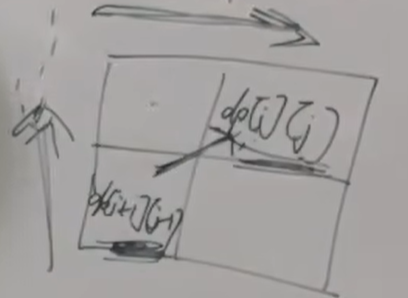 dp[i][j]
dp[i+1][j-1]